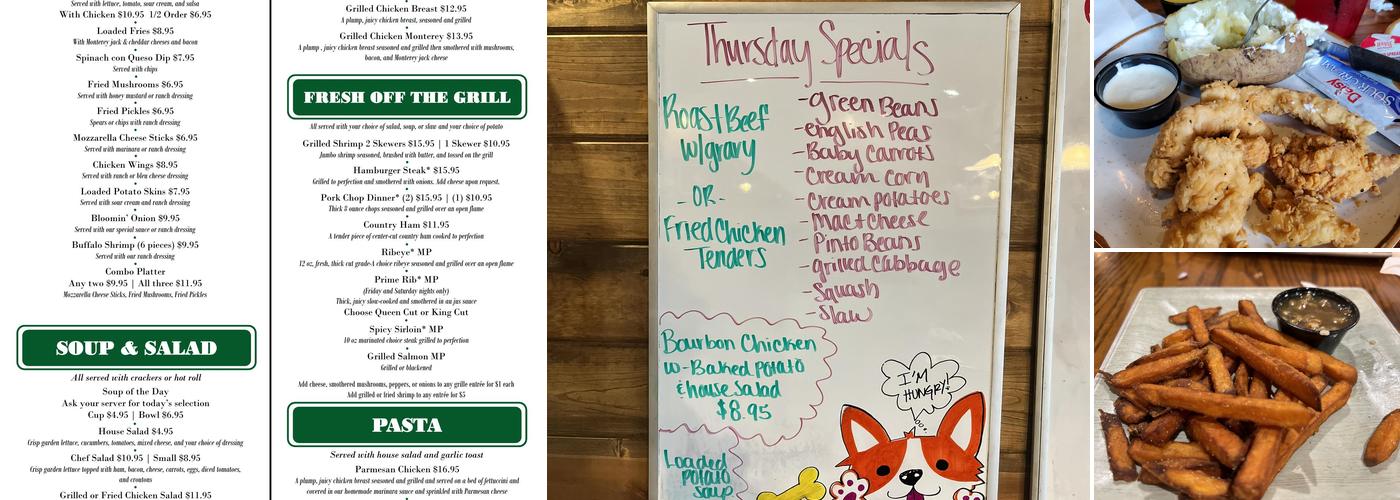 Served with lettuce, tomato, sour cream, and salsa
With Chicken $10.95 1/2 Order $6.95
Loaded Fries $8.95
With Monterey jack & cheddar cheeses and bacon
Spinach con Queso Dip $7.95
Served with chips
Fried Mushrooms $6.95
Served with honey mustard or ranch dressing
Fried Pickles $6.95
Spears or chips with ranch dressing
Mozzarella Cheese Sticks $6.95
Served with marinara or ranch dressing
Chicken Wings $8.95
Served with ranch or bleu cheese dressing
Loaded Potato Skins $7.95
Served with sour cream and ranch dressing
Bloomin' Onion $9.95
Served with our special sauce or ranch dressing
Buffalo Shrimp (6 pieces) $9.95
Served with our ranch dressing
Combo Platter
Any two $9.95 | All three $11.95
Mozzarella Cheese Sticks, Fried Mushrooms, Fried Pickles
SOUP & SALAD
All served with crackers or hot roll
Soup of the Day
Ask your server for today's selection
Cup $4.95 | Bowl $6.95
House Salad $4.95
Crisp garden lettuce, cucumbers, tomatoes, mixed cheese, and your choice of dressing
Chef Salad $10.95 | Small $8.95
Crisp garden lettuce topped with ham, bacon, cheese, carrots, eggs, diced tomatoes,
and croutons
Grilled or Fried Chicken Salad $11.95
Grilled Chicken Breast $12.95
A plump, juicy chicken breast, seasoned and grilled
Grilled Chicken Monterey $13.95
A plump , juicy chicken breast seasoned and grilled then smothered with mushrooms,
bacon, and Monterey jack cheese
FRESH OFF THE GRILL
All served with your choice of salad, soup, or slaw and your choice of potato
Grilled Shrimp 2 Skewers $15.95 | 1 Skewer $10.95
Jumbo shrimp seasoned, brushed with butter, and tossed on the grill
Hamburger Steak* $15.95
Grilled to perfection and smothered with onions. Add cheese upon request.
Pork Chop Dinner* (2) $15.95 | (1) $10.95
Thick 8 ounce chops seasoned and grilled over an open flame
Country Ham $11.95
A tender piece of center-cut country ham cooked to perfection
Ribeye* MP
12 oz, fresh, thick cut grade-A choice ribeye seasoned and grilled over an open flame
Prime Rib* MP
(Friday and Saturday nights only)
Thick, juicy slow-cooked and smothered in au jus sauce
Choose Queen Cut or King Cut
Spicy Sirloin* MP
10 oz marinated choice steak grilled to perfection
Grilled Salmon MP
Grilled or blackened
Add cheese, smothered mushrooms, peppers, or onions to any grille entrée for $1 each
Add grilled or fried shrimp to any entrée for $5
PASTA
Served with house salad and garlic toast
Parmesan Chicken $16.95
A plump, juicy chicken breast seasoned and grilled and served on a bed of fettuccini and
covered in our homemade marinara sauce and sprinkled with Parmesan cheese
Thursday Specials
Roast Beef
w/gravy
- OR -
Fried Chicken
Tenders
-green Beans
-english Peas
-Baby Carrots
-Cream Corn
-Cream Potatoes
-Mac+Cheese
-Pinto Beans
-grilled Cabbage
-Squash
-Slaw
Bourbon Chicken
w-Baked Potato
& house salad
$8.95
Loaded
Potato
Soup
I'M
HUNGRY!
Daisy
SOUR CREAM